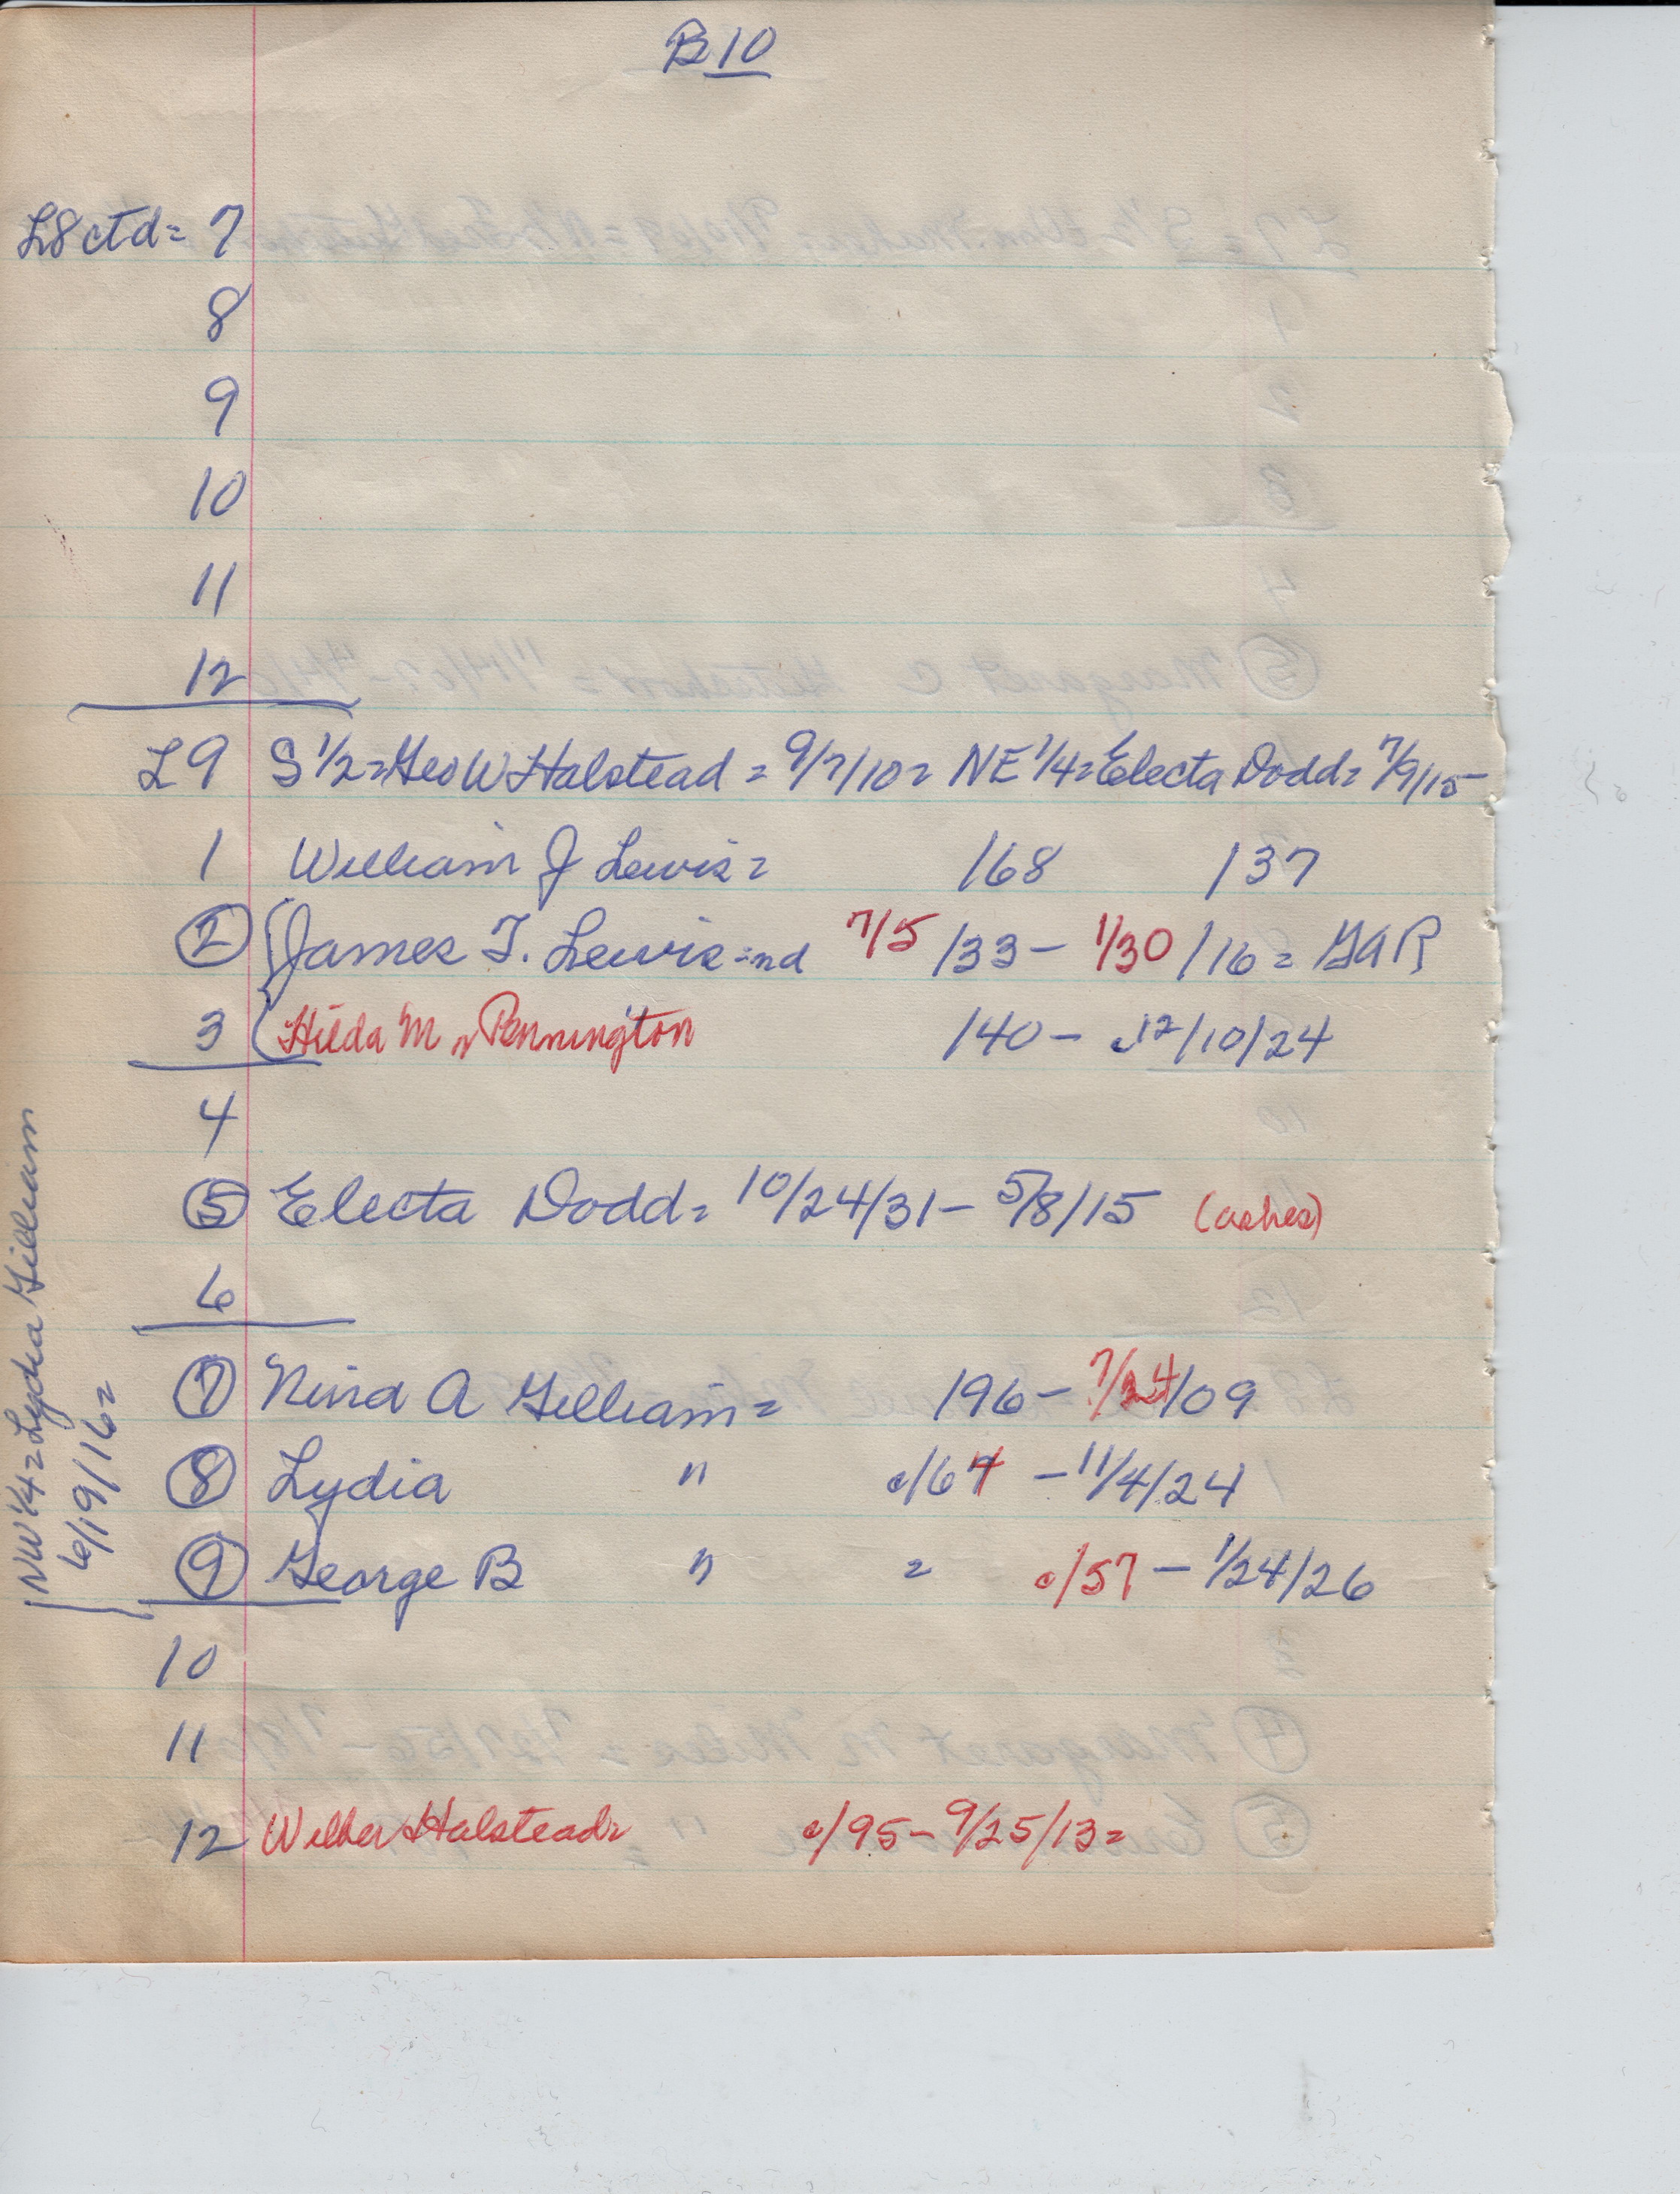 B10
L8 ctd = 7
8
9
10
11
12
L9 S 1/2 = Geo W Halstead = 9/7/10 = NE 1/4 = Electa Dodd = 7/9/15
1 William J Lewis = 168 137
2 James T. Lewis = nd 7/5/33 - 1/30/16 = GAR
3 Hilda M Pennington 140 - 12/10/24
4
5 Electa Dodd = 10/24/31 - 5/8/15 (ashes)
6
7 Nina A Gilliam = 196 - 7/24/09
8 Lydia " c/64 - 11/4/24
9 George B " = c/57 - 1/24/26
NW 1/4 = Lydia Gilliam
6/19/16 =
10
11
12 Wilber Halstead = c/95 - 9/25/13 =